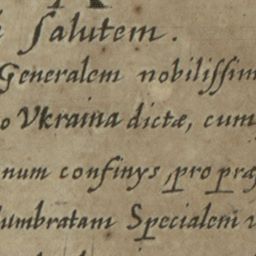 Salutem.
Generalem nobilissim
o Vkraina dictæ, cum
num confinys, pro præ
umbratam Specialem